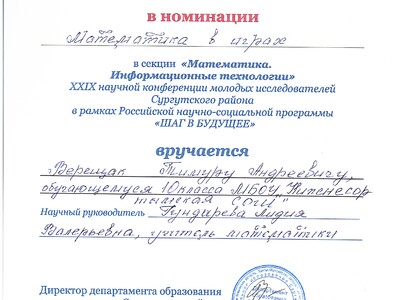 в номинации
Математика в играх
в секции «Математика.
Информационные технологии»
XXIX научной конференции молодых исследователей
Сургутского района
в рамках Российской научно-социальной программы
«ШАГ В БУДУЩЕЕ»
вручается
Верещак Тимуру Андреевичу,
обучающемуся 10 класса МБОУ "Нижнесор
тымская СОШ"
Научный руководитель Гундирева Лидия
Валерьевна, учитель математики
Директор департамента образования